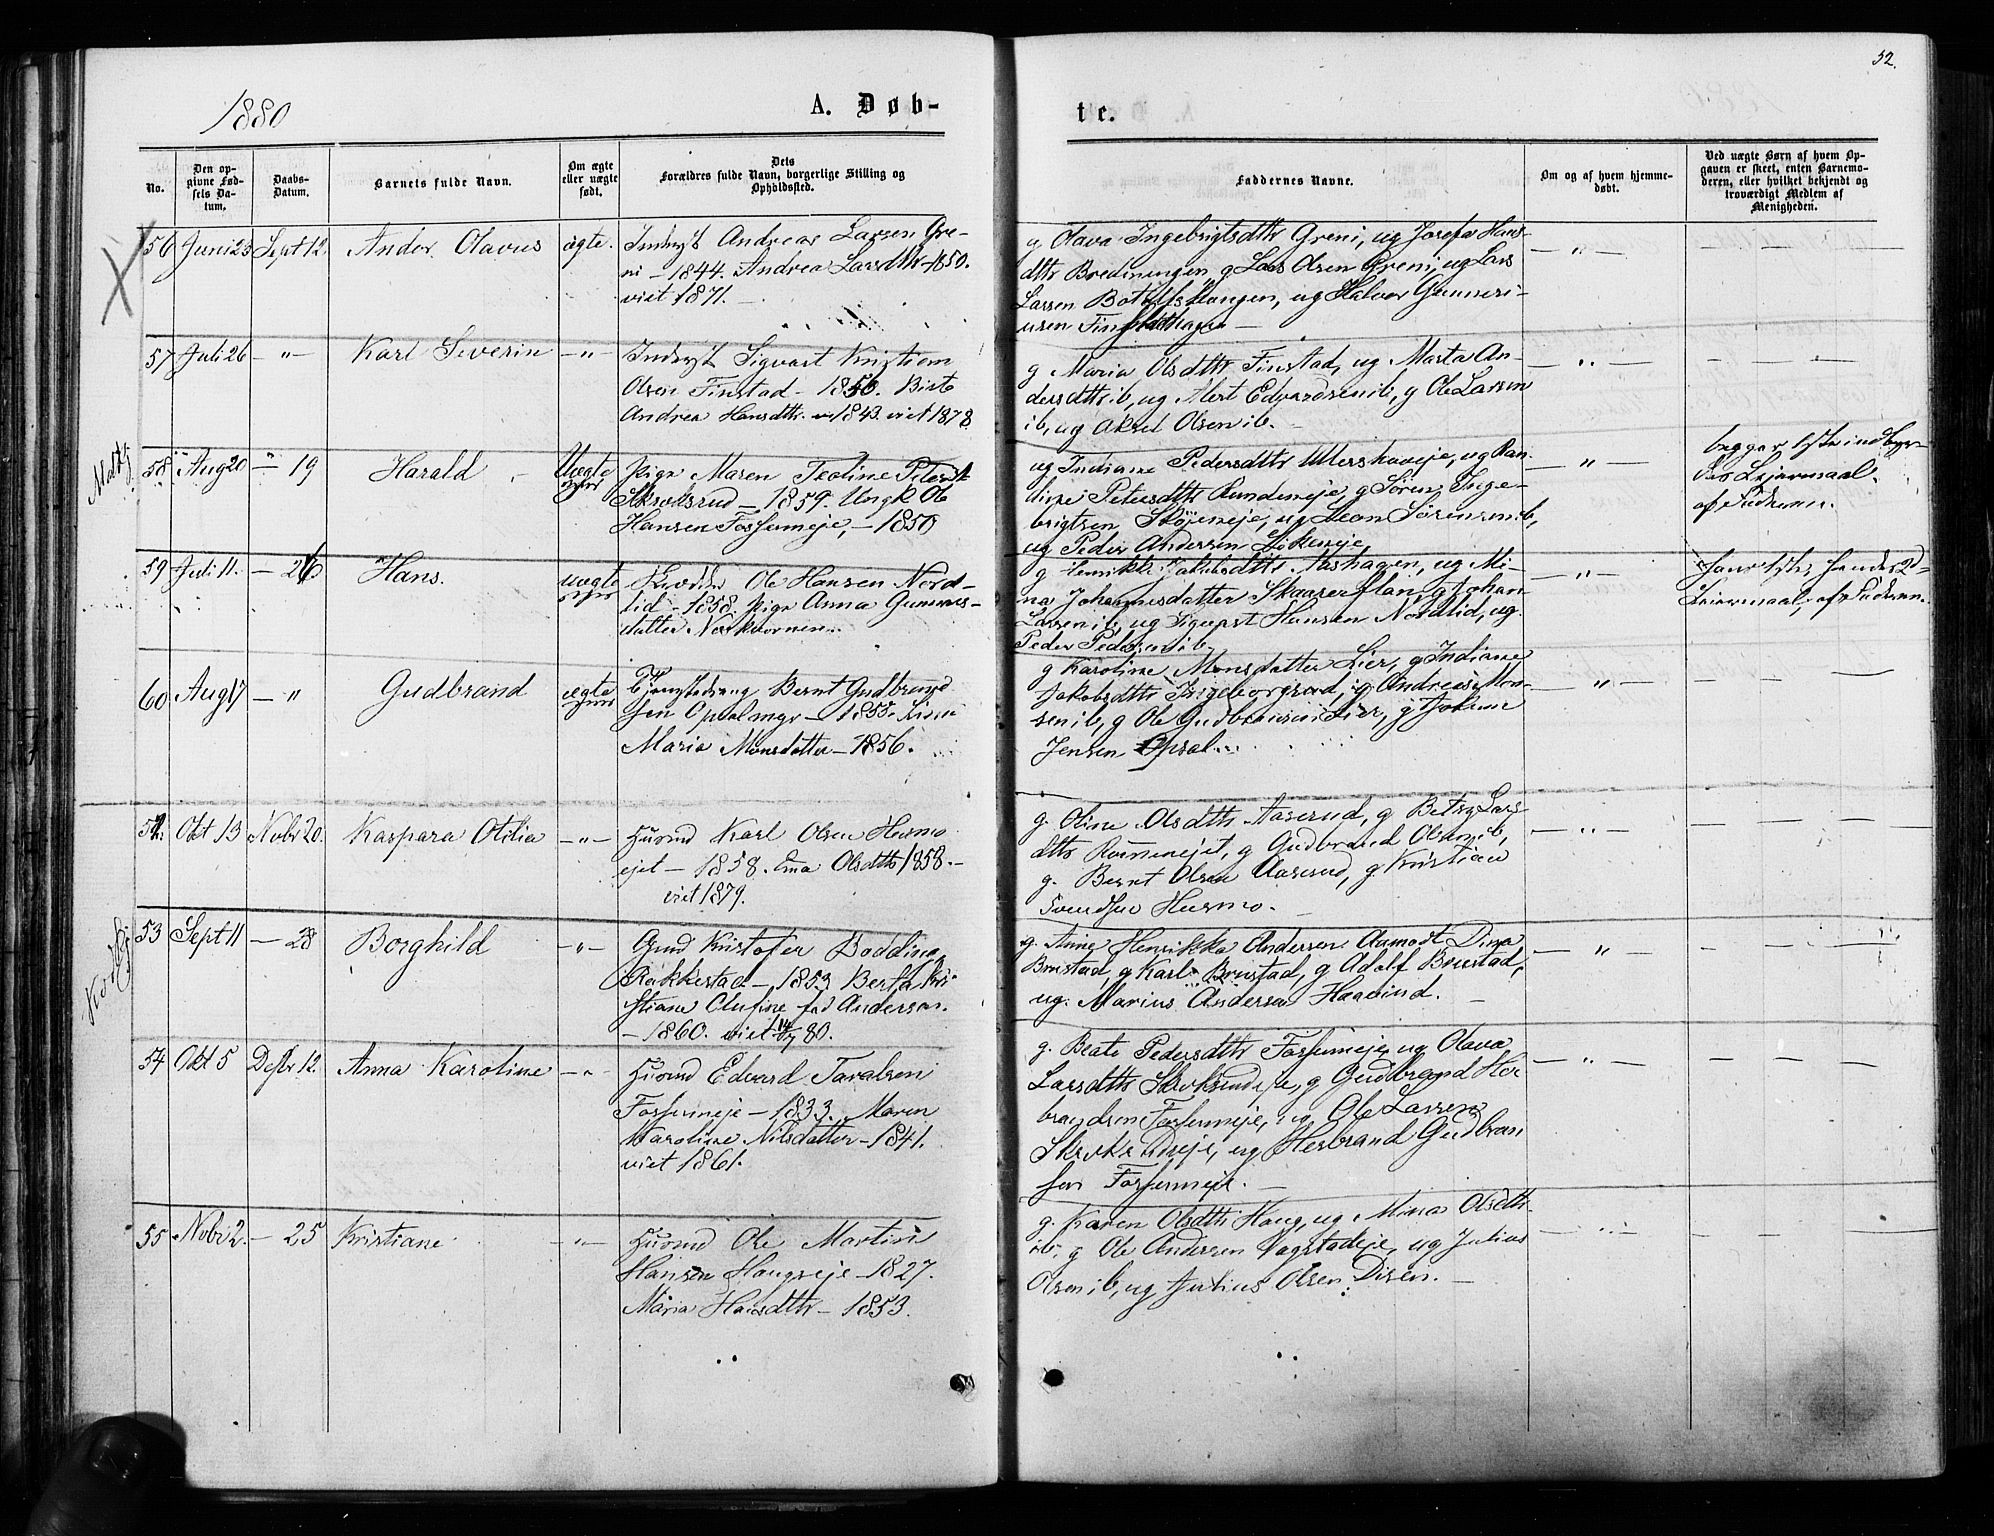 52.
1880
A. Døb-
te.
No.
Den op-
givne Fød-
sels Da-
tum.
Daabs-
Datum.
Barnets fulde Navn.
Om ægte
eller uægte
født.
Dets
Forældres fulde Navn, borgerlige Stilling og
Opholdssted.
Faddernes Navne.
Om og af hvem hjemme-
døbt.
Ved uægte Børn af hvem Op-
gaven er skeet, enten Barnemo-
deren, eller hvilket bekjendt og
troværdigt Medlem af
Menigheden.
56 Juni 23 Sept 12. Ander Olavus ægte.
Indryt Andreas Larsen Gre-
ni - 1844. Andrea Larsdtr - 1850.
viet 1871. -
g Olava Ingebrigtsdtr Greni, ug Josefa Hans-
dtr Bredningen, g Lars Olsen Greni, ug Lars
Larsen Botilfshaugen, ug Halvor Gunneri-
usen Finstadhagen -
- " -
57 Juli 26 - " - Karl Severin - " -
Indryt Sigvart Kristian
Olsen Finstad - 1850. Birte
Andrea Hansdtr. 1843. viet 1878.
g Maria Olsdtr Finstad, ug Marta An-
dersdtr ib, ug Edvardsen ib, g Ole Larsen
ib, ug Aksel Olsen ib.
- " -
58 Aug 20 - 19 Harald Uægte
Pige Maren Teoline Petersdt
Skroksrud - 1859. Ungk Ole
Hansen Fossumeje, - 1850
ug Indiane Pedersdtr Ullershoveje, ug Ran-
dine Petersdtr Rundeneje g Søren Inge-
brigtsen Støyeneje, ug Leon Sørensen ib,
ug Peder Andersen Løkeneje
- " -
begges 1ste
Leiermaal.
af Faderen.
59 Juli 11. - 26 Hans. uægte
Ole Hansen Nord-
lid - 1858. Pige Anna Gunners-
datter
g Henrikke Jakobsdtr Aashagen, ug Mi-
na Johannesdatter g Johan
Larsen ib, ug Sigvart Hansen Nordlid, ug.
Peder Pedersen ib.
- " -
hans 1ste, hendes 2d
Leiermaal, af Faderen.
60 Aug 17 - " Gudbrand ægte
Bernt Gudbrand
sen Opsalmgr - 1855.
Maria Monsdatter - 1856.
g Karoline Monsdatter Lier, g Indiane
Jakobsdtr Ingeborgrud, g Andreas Mon-
sen ib, g Ole Gudbrandsen Lier, g Johan
Jensen Opsal.
- " -
52. Okt 13 Novbr 20. Kaspara Otilia - " -
Husmd Karl Olsen Husmo
ejet - 1858. Ema Olsdtr 1858. -
viet 1879.
g. Oline Olsdtr Aaserud, g Betsy Lars-
dtr g Gudbrand Olsen ib,
g. Bernt Olsen Aaserud, g Kristian
Svendsen Husmo.
- " -
53 Sept 11 - 28 Borghild - " -
Grmd Kristofer Bodding
Rakkestad - 1853. Berta Kri-
stiane Olufine fød Andersen.
- 1860. viet 14/7 80.
g. Anne Henrikka Andersen Aamodt, Dina
Brustad, g Karl Brustad, g Adolf Brustad,
ug. Marius Andersen Haavind.
- " -
54 Okt 5 Desbr 12 Anna Karoline - " -
Husmd Edvard Tavalsen
Fossumeje - 1833. Maren
Karoline Nilsdatter - 1841.
viet 1861.
g. Beate Pedersdtr Fossumeje, ug Olava
Larsdtr Skroksrudeje, g Gudbrand Her
brandsen Fossumeje, ug Ole Larsen
Skroksrudeje, ug Herbrand Gudbran
sen Fossumeje. -
- " -
55 Novbr 2. - 25 Kristiane - " -
Husmd Ole Martin
Hansen Haugseje - 1827.
Maria Hansdtr - 1853.
g. Karen Olsdtr Haug, ug Mina Olsdtr.
ib. g Ole Andersen Vagstadeje, ug Julius
Olsen ib, ug Julius Olsen Disen. -
- " -